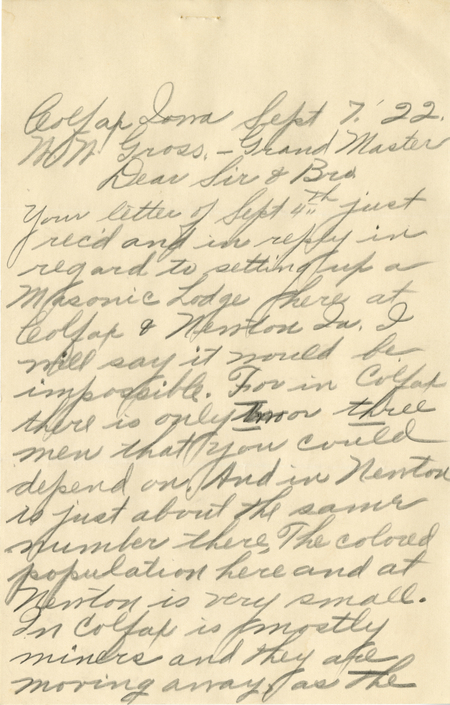 Colfax Iowa Sept 7. '22.
W. W. Gross, - Grand Master
Dear Sir & Bro.
Your letter of Sept 4th just
rec'd and in reply in
regard to setting up a
Masonic Lodge here at
Colfax & Newton Ia. I
will say it would be
impossible. For in Colfax
there is only Two or three
men that you could
depend on. And in Newton
is just about the same
number there. The colored
population here and at
Newton is very small.
In Colfax is mostly
miners and they are
moving away, as the